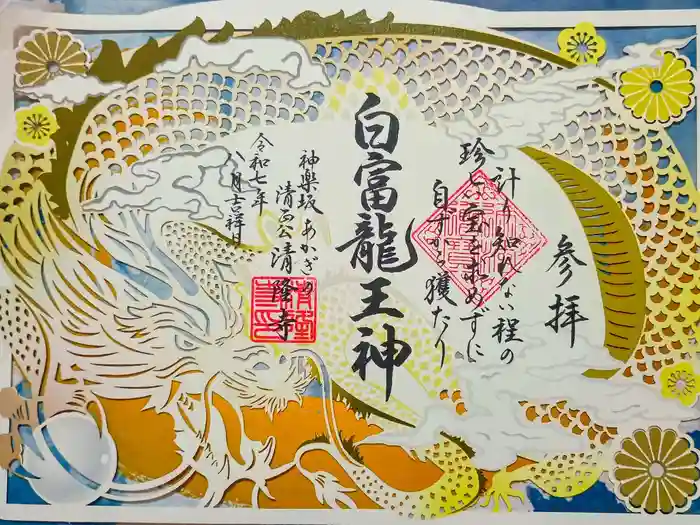 参拝
計り知れない程の
珍しい宝を求めずに
自ずから獲たり
白富龍王神
神楽坂あかぎの
清正公 清隆寺
令和七年
八月吉祥日